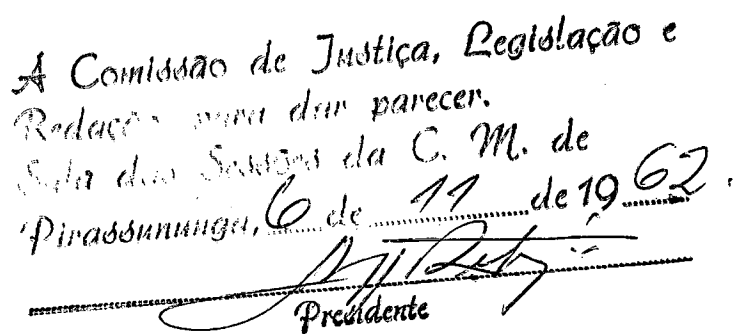 A Comissão de Justiça, Legislação e
Redação para dar parecer.
Sala das Sessões da C. M. de
Pirassununga, 6 de 11 de 1962.
Presidente